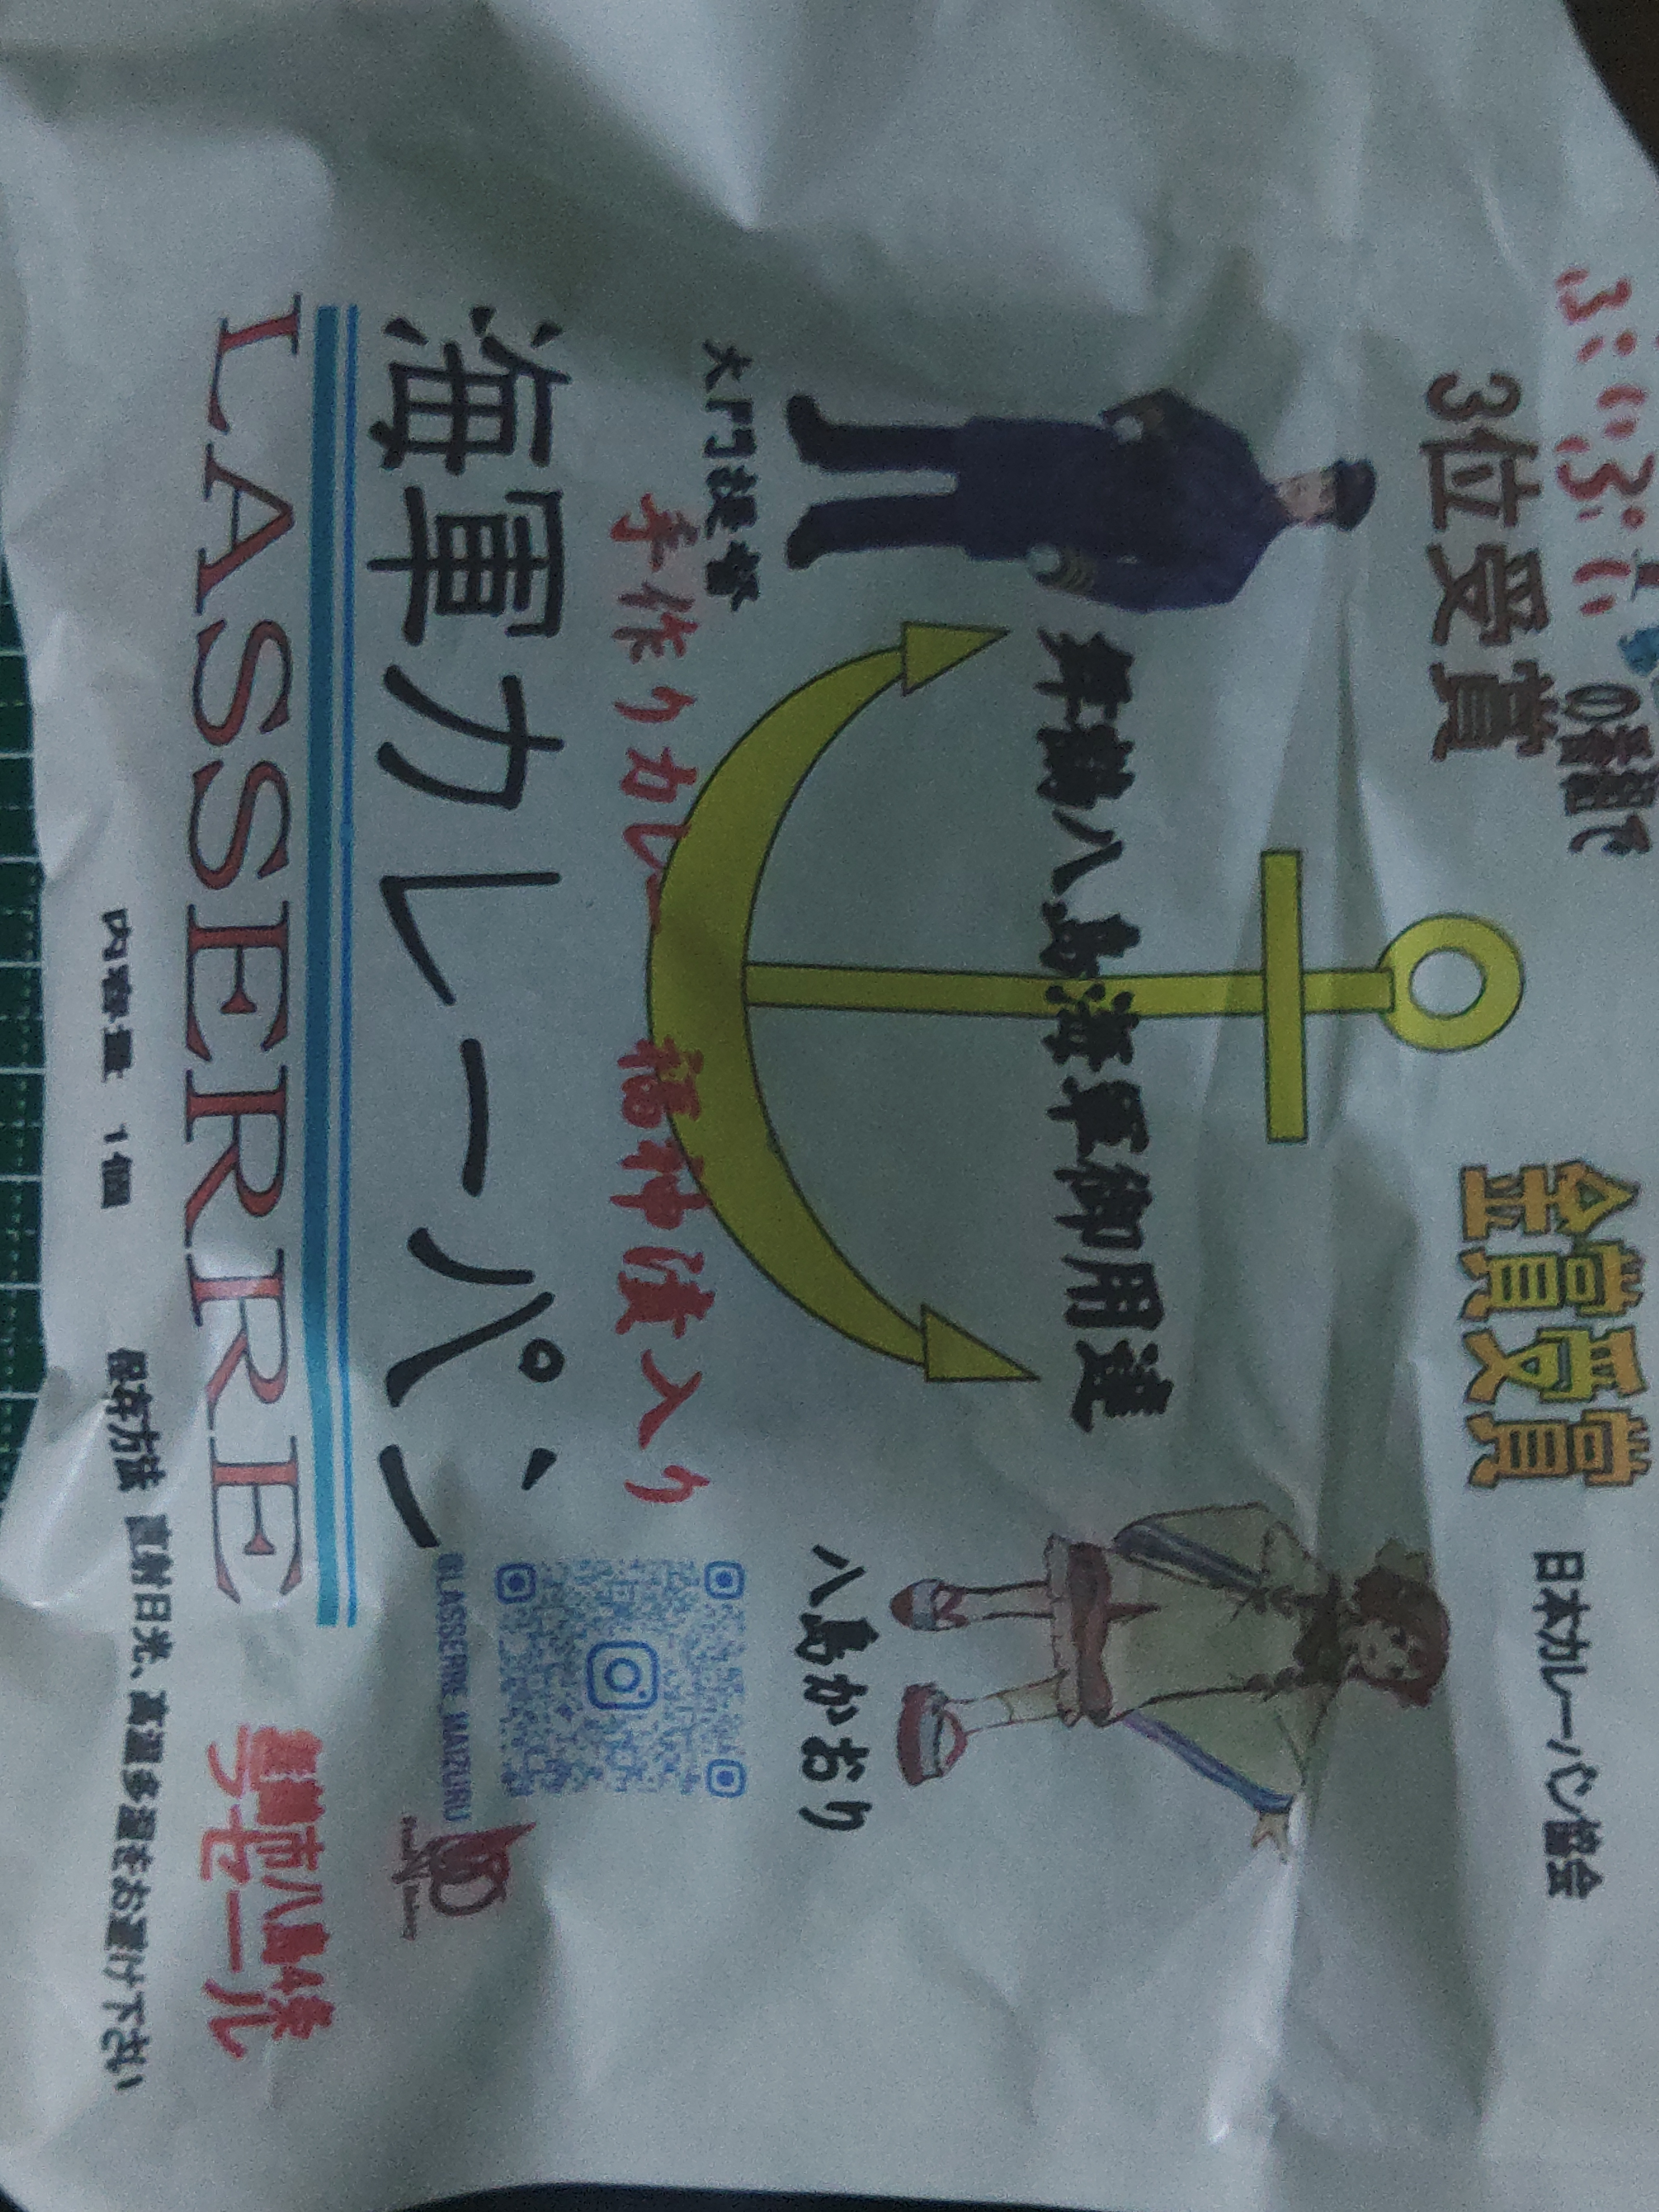 ぶいぶい
の番組で
3位受賞
金賞受賞
日本カレーパン協会
舞鶴八島海軍御用達
大門提督
八島かおり
手作りカレー 福神漬入り
海軍カレーパン
@LASSERRE_MAIZURU
LASSERRE
舞鶴市八島通
ラセール
内容量 1個 保存方法 直射日光、高温多湿をお避け下さい